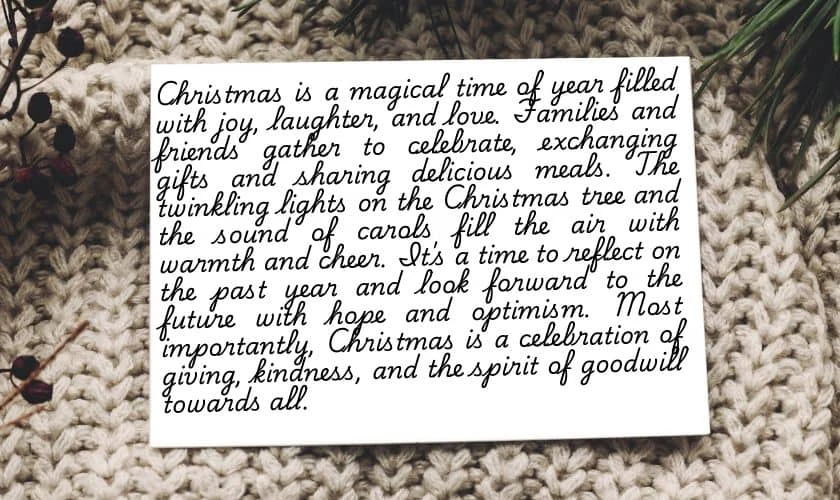 Christmas is a magical time of year filled
with joy, laughter, and love. Families and
friends gather to celebrate, exchanging
gifts and sharing delicious meals. The
twinkling lights on the Christmas tree and
the sound of carols fill the air with
warmth and cheer. It's a time to reflect on
the past year and look forward to the
future with hope and optimism. Most
importantly, Christmas is a celebration of
giving, kindness, and the spirit of goodwill
towards all.